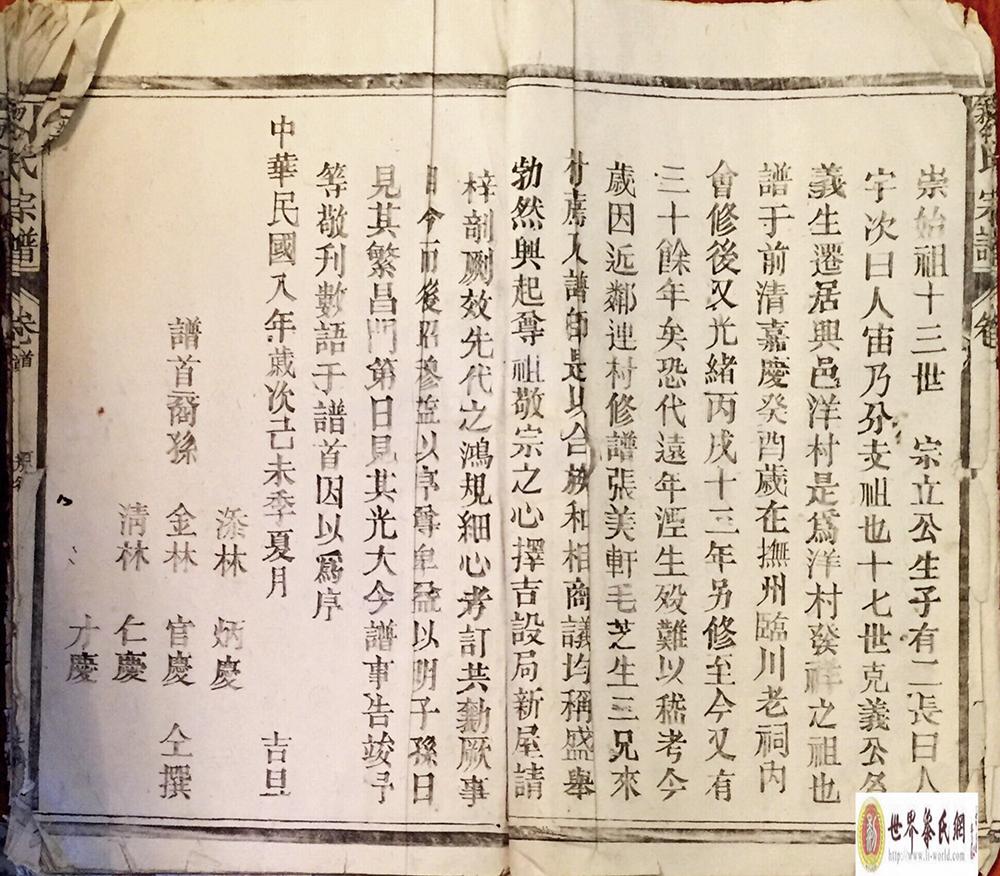 崇始祖十三世　宗立公生子有二長曰人
宇次曰人宙乃分支祖也十七世克義公分
義生遷居興邑洋村是爲洋村發祥之祖也
譜于前清嘉慶癸酉歲在撫州臨川老祠內
會修後又光緒丙戌十二年另修至今又有
三十餘年矣恐代遠年湮生歿難以嵇考今
歲因近鄰連村修譜張美軒毛芝生三兄來
村薦入譜師是以合族和相商議均稱盛舉
勃然興起尊祖敬宗之心擇吉設局新屋請
梓剞劂效先代之鴻規細心考訂共勷厥事
自今而後昭穆益以序尊卑益以明子孫日
見其繁昌門第日見其光大今譜事告竣予
等敬刊數語于譜首因以爲序
中華民國八年歲次己未季夏月　吉旦
添林　炳慶
譜首裔孫　金林　官慶　仝撰
清林　仁慶
才慶
氏宗譜　卷首
世界蔡氏網
http://www.lt-world.com